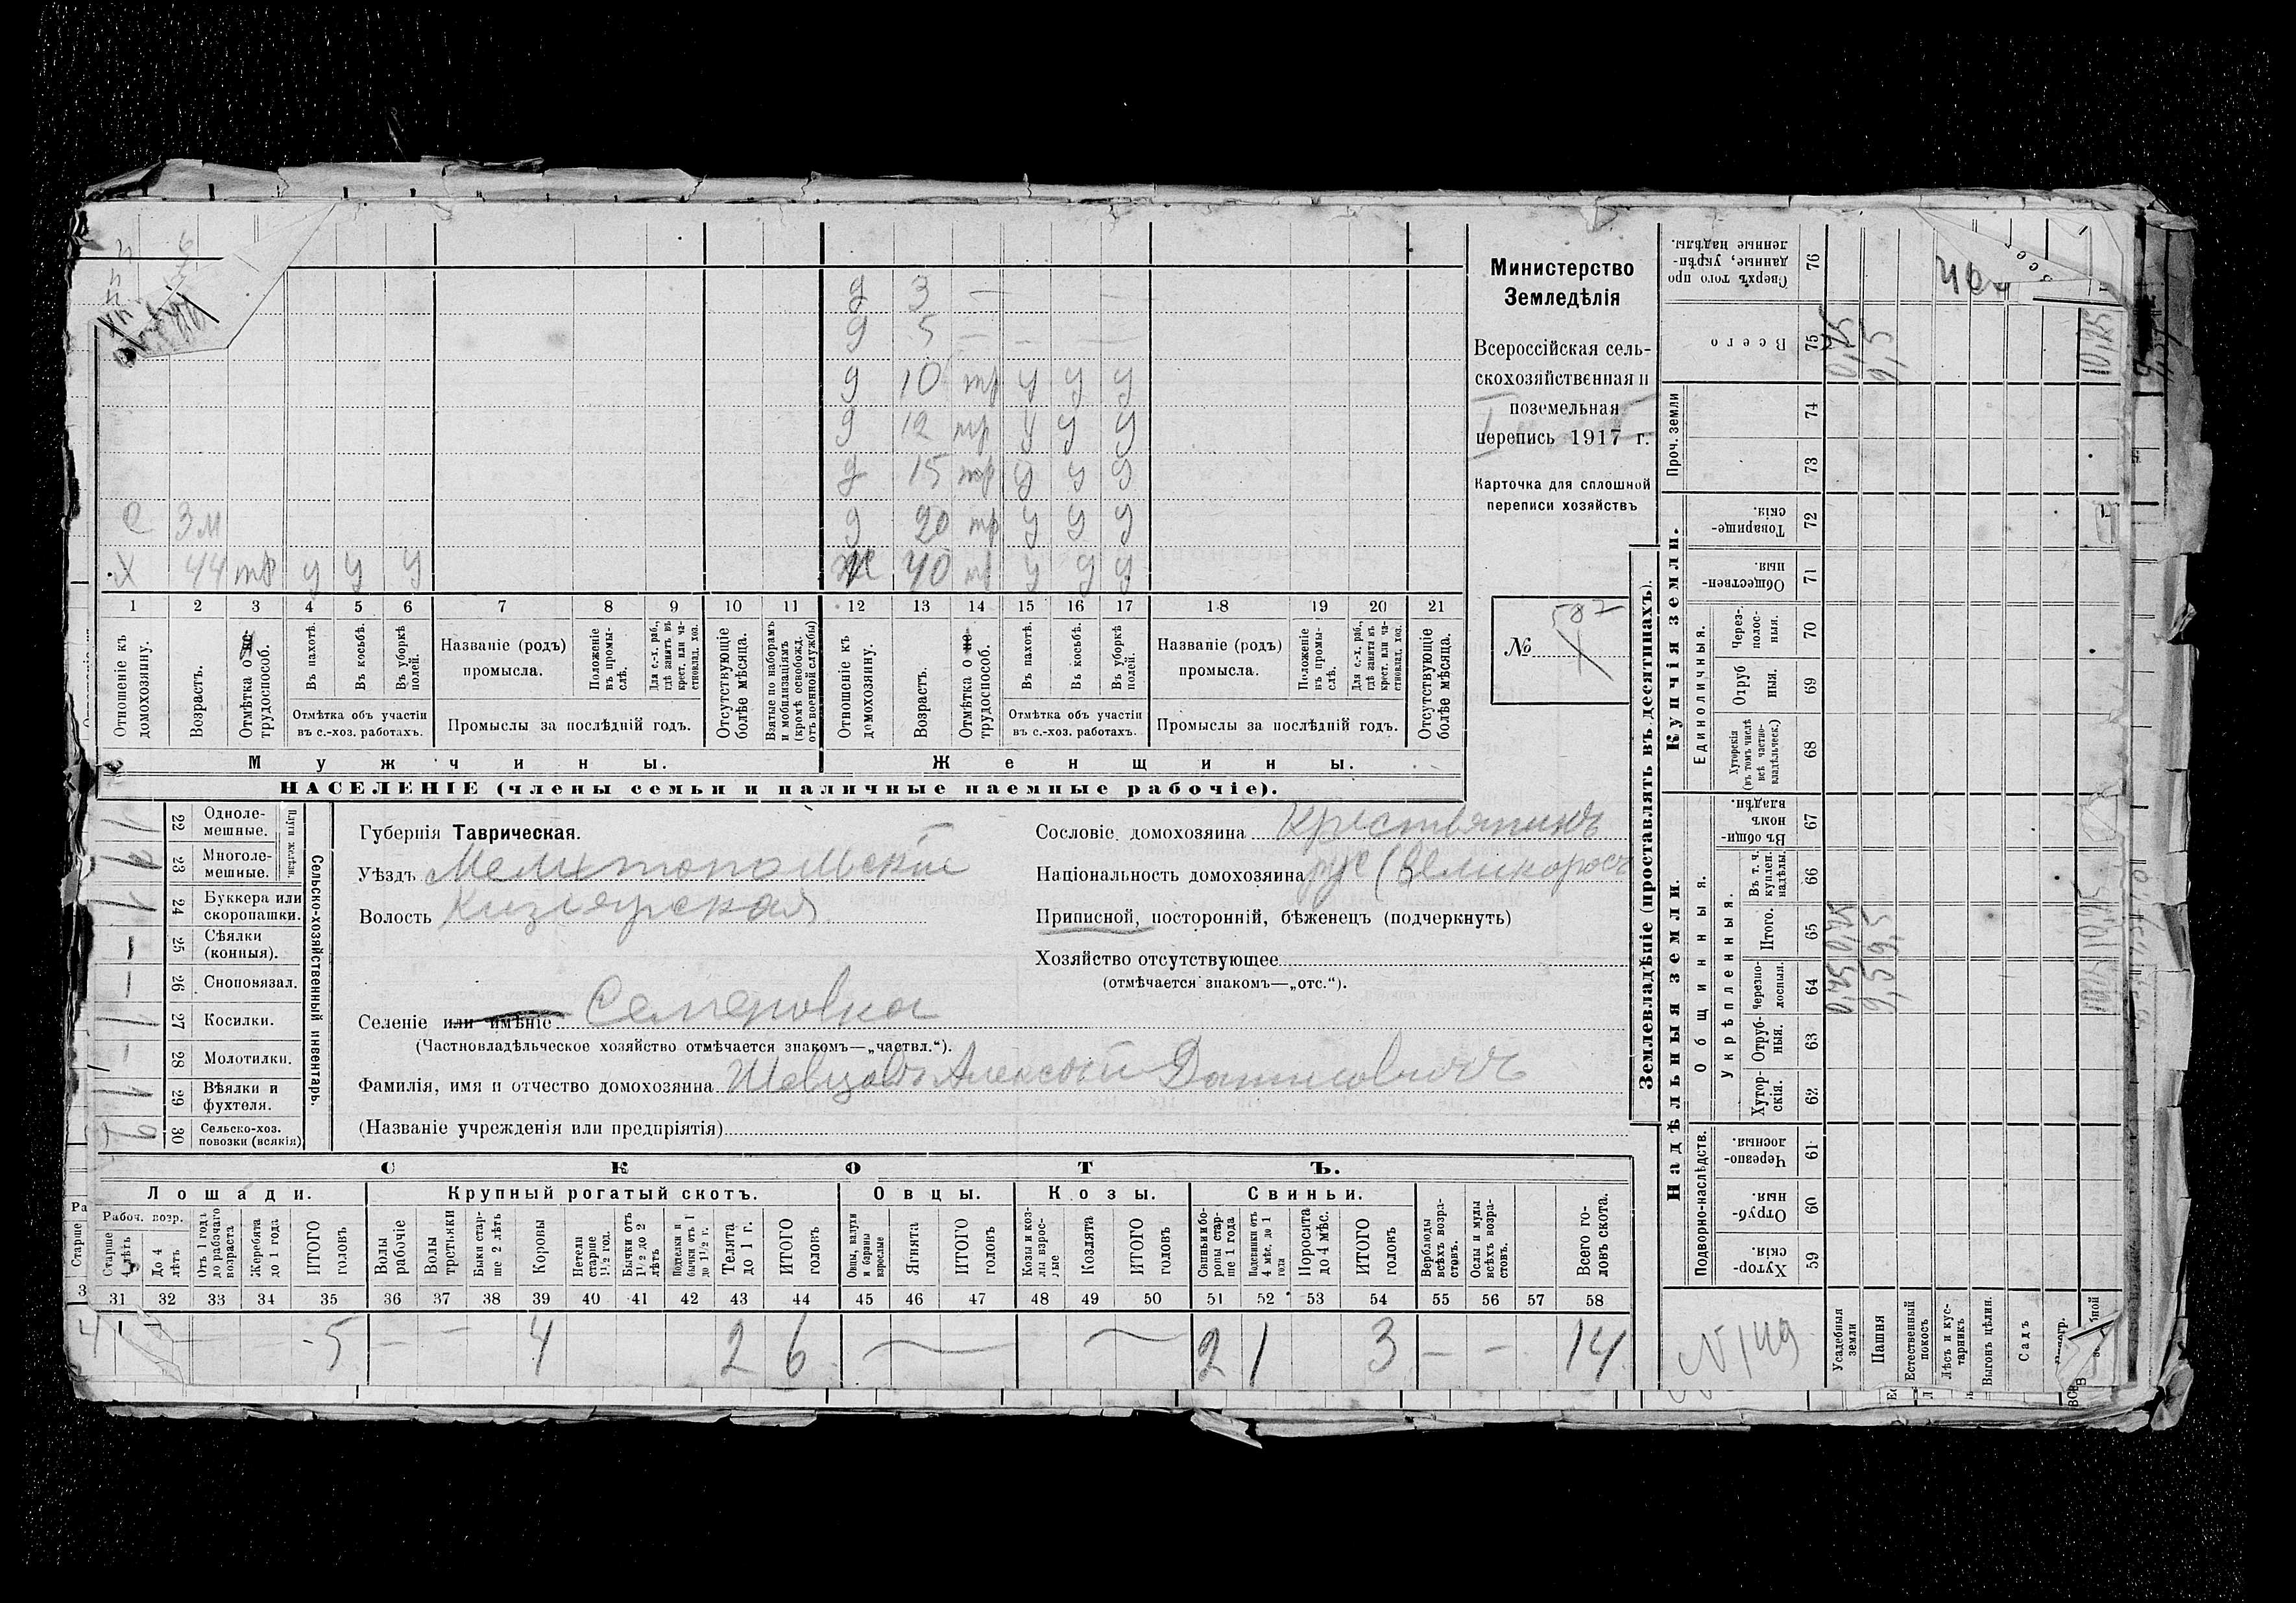 д 3 — —
д 5 — — —
д 10 тр у у у
д 12 тр у у у
д 15 тр у у у
с 3 м д 20 тр у у у
х 44 тр у у у ж 40 тр у у у
1 2 3 4 5 6 7 8 9 10 11 12 13 14 15 16 17 18 19 20 21
Отношеніе къ домохозяину.
Возрастъ.
Отмѣтка о не-трудоспособ.
Въ пахотѣ.
Въ косьбѣ.
Въ уборкѣ полей.
Отмѣтка объ участіи въ с.-хоз. работахъ.
Названіе (родъ) промысла.
Положеніе въ промы-слѣ.
Для с.-х. раб., гдѣ занятъ въ крест. или ча-стновлад. хоз.
Промыслы за послѣдній годъ.
Отсутствующіе болѣе мѣсяца.
Взятые по наборамъ и мобилизаціямъ (кромѣ освобожд. отъ военной службы)
Отношеніе къ домохозяину.
Возрастъ.
Отмѣтка о не-трудоспособ.
Въ пахотѣ.
Въ косьбѣ.
Въ уборкѣ полей.
Отмѣтка объ участіи въ с.-хоз. работахъ.
Названіе (родъ) промысла.
Положеніе въ промы-слѣ.
Для с.-х. раб., гдѣ занята въ крест. или ча-стновлад. хоз.
Промыслы за послѣдній годъ.
Отсутствующіе болѣе мѣсяца.
Мужчины. Женщины.
НАСЕЛЕНІЕ (члены семьи и наличные наемные рабочіе).
Министерство
Земледѣлія
Всероссійская сель-
скохозяйственная и
поземельная
перепись 1917 г.
Карточка для сплошной
переписи хозяйствъ
587
№
Сельско-хозяйственный инвентарь.
Плуги желѣзн.
22 Одноле-мешные.
23 Многоле-мешные.
24 Буккера или скоропашки.
25 Сѣялки (конныя).
26 Сноповязал.
27 Косилки.
28 Молотилки.
29 Вѣялки и фухтеля.
30 Сельско-хоз. повозки (всякія)
Губернія Таврическая.
Уѣздъ Мелитопольскій
Волость Кизіярская
Селеніе или имѣніе. Семеновка
(Частновладѣльческое хозяйство отмѣчается знакомъ—„частвл.“).
Фамилія, имя и отчество домохозяина Шевцовъ Алексѣй Данисовичъ
(Названіе учрежденія или предпріятія)
Сословіе домохозяина Крестьянинъ
Національность домохозяина рус (великоросъ
Приписной, посторонній, бѣженецъ (подчеркнуть)
Хозяйство отсутствующее
(отмѣчается знакомъ—„отс.“).
СКОТЪ.
Лошади. Крупный рогатый скотъ. Овцы. Козы. Свиньи.
Рабоч. возр.
Старше 4 лѣтъ
До 4 лѣтъ
Отъ 1 года до рабочаго возраста
Жеребята до 1 года
ИТОГО головъ
Волы рабочіе
Волы третьяки
Быки стар-ше 2 лѣтъ
Коровы
Нетели старше 1½ год.
Бычки отъ 1½ до 2 лѣтъ
Подтелки и бычки отъ 1 до 1½ г.
Телята до 1 г.
ИТОГО головъ
Овцы, валухи и бараны взрослые
Ягнята
ИТОГО головъ
Козы и коз-лы взрос-лые
Козлята
ИТОГО головъ
Свиньи и бо-ровы стар-ше 1 года
Подсвинки отъ 4 мѣс. до 1 года
Поросята до 4 мѣс.
ИТОГО головъ
Верблюды всѣхъ возра-стовъ.
Ослы и мулы всѣхъ возра-стовъ.
Всего го-ловъ скота.
31 32 33 34 35 36 37 38 39 40 41 42 43 44 45 46 47 48 49 50 51 52 53 54 55 56 57 58
4 5 — — 4 2 6 2 1 3 — — 14
Землевладѣніе (проставлять въ десятинахъ).
Надѣльныя земли. Купчія земли. Проч. земли
Подворно-наслѣдств.
Общинныя.
Укрѣпленныя.
Единоличныя.
59 Хутор-скія.
60 Отруб-ныя.
61 Черезпо-лосныя.
62 Хутор-скія.
63 Отруб-ныя.
64 Черезпо-лосныя.
65 Итого.
66 Въ т. ч. куплен. надѣлы.
67 Въ общи-номъ владѣн.
68 Хуторскія (въ томъ числѣ всѣ частно-владѣльческ.)
69 Отруб ныя.
70 Через-полос-ныя.
71 Обществен-ныя.
72 Товарище-скія.
73
74
75 Всего
76 Сверхъ того про данные, укрѣп-ленные надѣлы.
№ 149
Усадебныя земли
Пашня
Естественный покосъ
Лѣсъ и кус-тарникъ
Выгонъ цѣлин.
Садъ